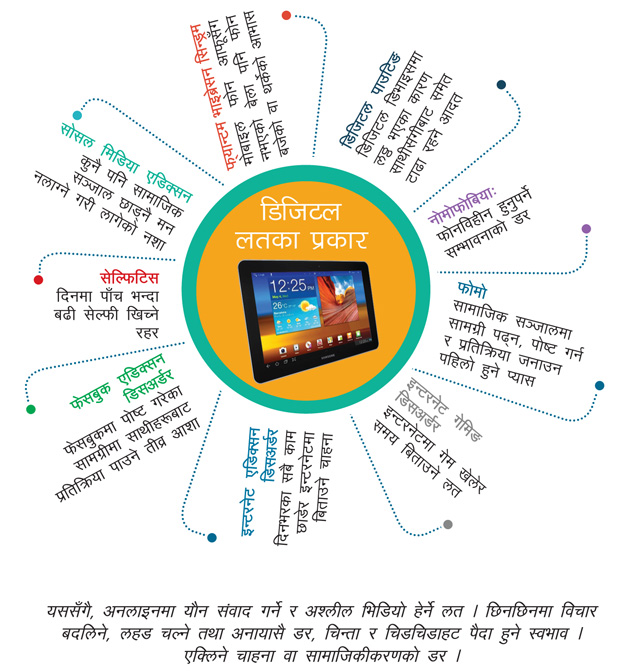 डिजिटल
लतका प्रकार
फ्यान्टम भाइब्रेसन सिन्ड्रम
मोबाइल फोन आफूसँग
नभएको बेला पनि फोन
बजेको वा थर्केको आभास
डिजिटल पाउटिङ
डिजिटल डिभाइसमा
लठ्ठ भएका कारण
साथीसंगीबाट समेत
टाढा रहने आदत
नोमोफोबियाः
फोनविहीन हुनुपर्ने
सम्भावनाको डर
फोमो
सामाजिक सञ्जालमा
सामग्री पढ्न, पोष्ट गर्न
र प्रतिक्रिया जनाउन
पहिलो हुने प्यास
इन्टरनेट गेमिङ
डिसअर्डर
इन्टरनेटमा गेम खेलेर
समय बिताउने लत
इन्टरनेट एडिक्सन
डिसअर्डर
दिनभरका सबै काम
छाडेर इन्टरनेटमा
बिताउने चाहना
फेसबुक एडिक्सन
डिसअर्डर
फेसबुकमा पोष्ट गरेका
सामग्रीमा साथीहरूबाट
प्रतिक्रिया पाउने तीव्र आशा
सेल्फिटिस
दिनमा पाँच भन्दा
बढी सेल्फी खिच्ने
रहर
सोसल मिडिया एडिक्सन
कुनै पनि सामाजिक
सञ्जाल छाड्नै मन
नलाग्ने गरी लागेको नशा
12:25 PM
26°C
यससँगै, अनलाइनमा यौन संवाद गर्ने र अश्लील भिडियो हेर्ने लत । छिनछिनमा विचार
बदलिने, लहड चल्ने तथा अनायासै डर, चिन्ता र चिडचिडाहट पैदा हुने स्वभाव ।
एक्लिने चाहना वा सामाजिकीकरणको डर ।